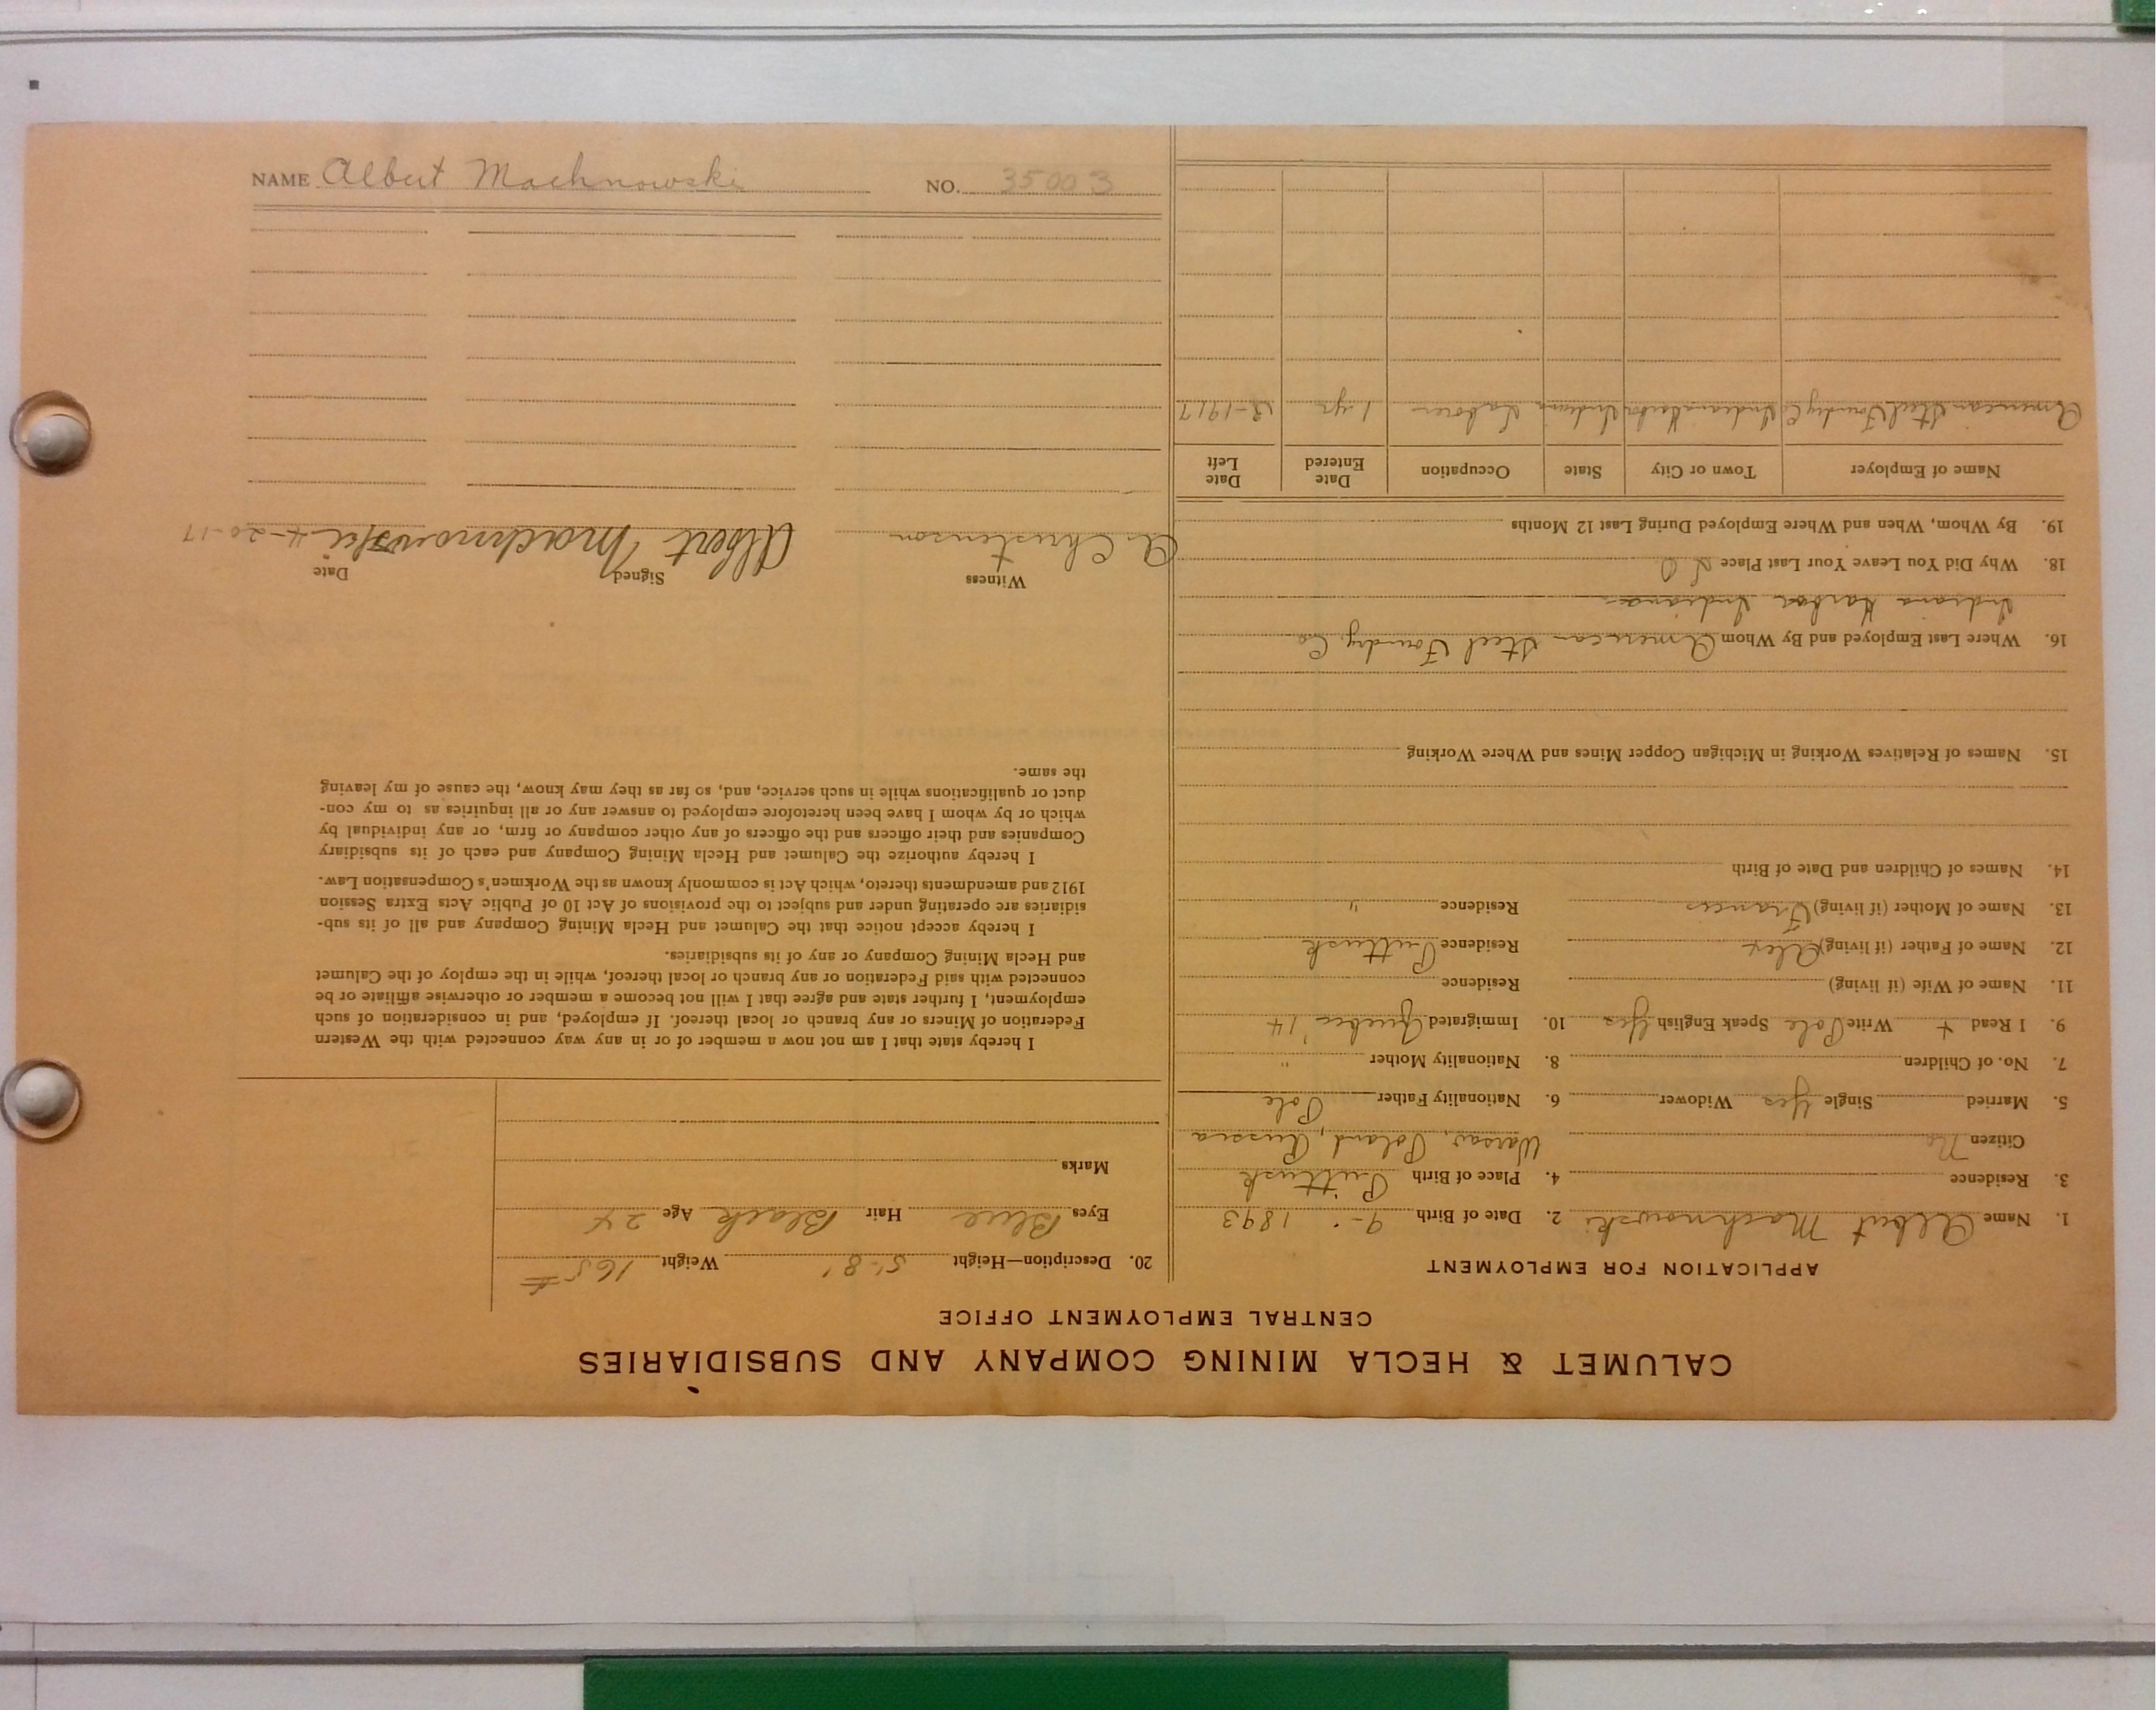 NAME Albert Machnowski NO. 35003
CALUMET & HECLA MINING COMPANY AND SUBSIDIARIES
CENTRAL EMPLOYMENT OFFICE
APPLICATION FOR EMPLOYMENT
1. Name Albert Machnowski 2. Date of Birth 9- 1893
3. Residence 4. Place of Birth Pultusk
Citizen No Warsaw, Poland, Russia
5. Married Single Yes Widower 6. Nationality Father Pole
7. No. of Children 8. Nationality Mother "
9. I Read + Write Pole Speak English Yes 10. Immigrated Quebec '14
11. Name of Wife (if living) Residence
12. Name of Father (if living) Alex Residence Pultusk
13. Name of Mother (if living) Frances Residence "
14. Names of Children and Date of Birth
15. Names of Relatives Working in Michigan Copper Mines and Where Working
16. Where Last Employed and By Whom American Steel Foundry Co
Indiana Harbor Indiana
18. Why Did You Leave Your Last Place
19. By Whom, When and Where Employed During Last 12 Months
Name of Employer Town or City State Occupation Date Entered Date Left
American Steel Foundry Co Indiana Harbor Indiana Laborer 1 yr 3-1917
20. Description—Height 5'-8" Weight 165#
Eyes Blue Hair Black Age 24
Marks
I hereby state that I am not now a member of or in any way connected with the Western
Federation of Miners or any branch or local thereof. If employed, and in consideration of such
employment, I further state and agree that I will not become a member or otherwise affiliate or be
connected with said Federation or any branch or local thereof, while in the employ of the Calumet
and Hecla Mining Company or any of its subsidiaries.
I hereby accept notice that the Calumet and Hecla Mining Company and all of its sub-
sidiaries are operating under and subject to the provisions of Act 10 of Public Acts Extra Session
1912 and amendments thereto, which Act is commonly known as the Workmen's Compensation Law.
I hereby authorize the Calumet and Hecla Mining Company and each of its subsidiary
Companies and their officers and the officers of any other company or firm, or any individual by
which or by whom I have been heretofore employed to answer any or all inquiries as to my con-
duct or qualifications while in such service, and, so far as they may know, the cause of my leaving
the same.
Witness Signed Date
A Christenson Albert Machnowski 4-20-17